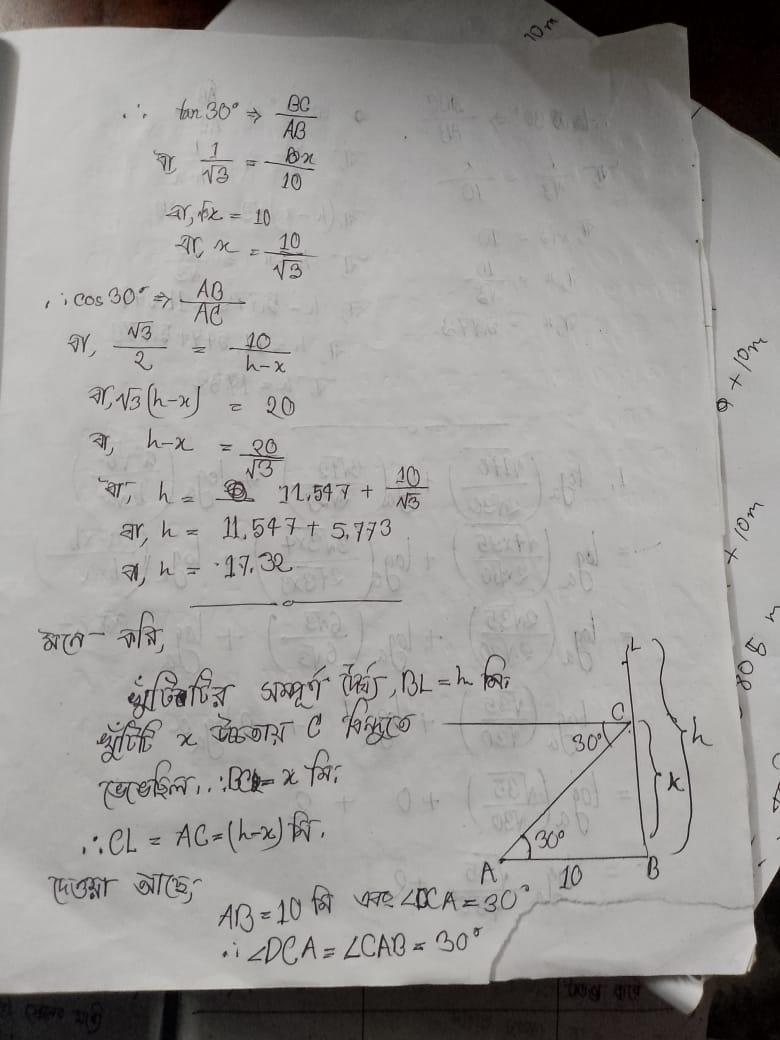 10m
∴ tan 30° ⇒ BC/AB
বা, 1/√3 = x/10
বা, √x = 10
বা, x = 10/√3
∴ cos 30° ⇒ AB/AC
বা, √3/2 = 10/h-x
বা, √3(h-x) = 20
বা, h-x = 20/√3
বা, h = 11.547 + 10/√3
বা, h = 11.547 + 5.773
বা, h = 17.32
মনে করি,
খুঁটিটির সম্পূর্ণ দৈর্ঘ্য, BL = h মি:
খুঁটিটি x উচ্চতায় C বিন্দুতে
ভেঙেছিল, ∴ BC = x মি:
∴ CL = AC = (h-x) মি.
দেওয়া আছে,
AB = 10 মি এবং ∠DCA = 30°
∴ ∠DCA = ∠CAB = 30°
L
C
30°
h
x
30°
A
10
B
+ 10m
+ 10m